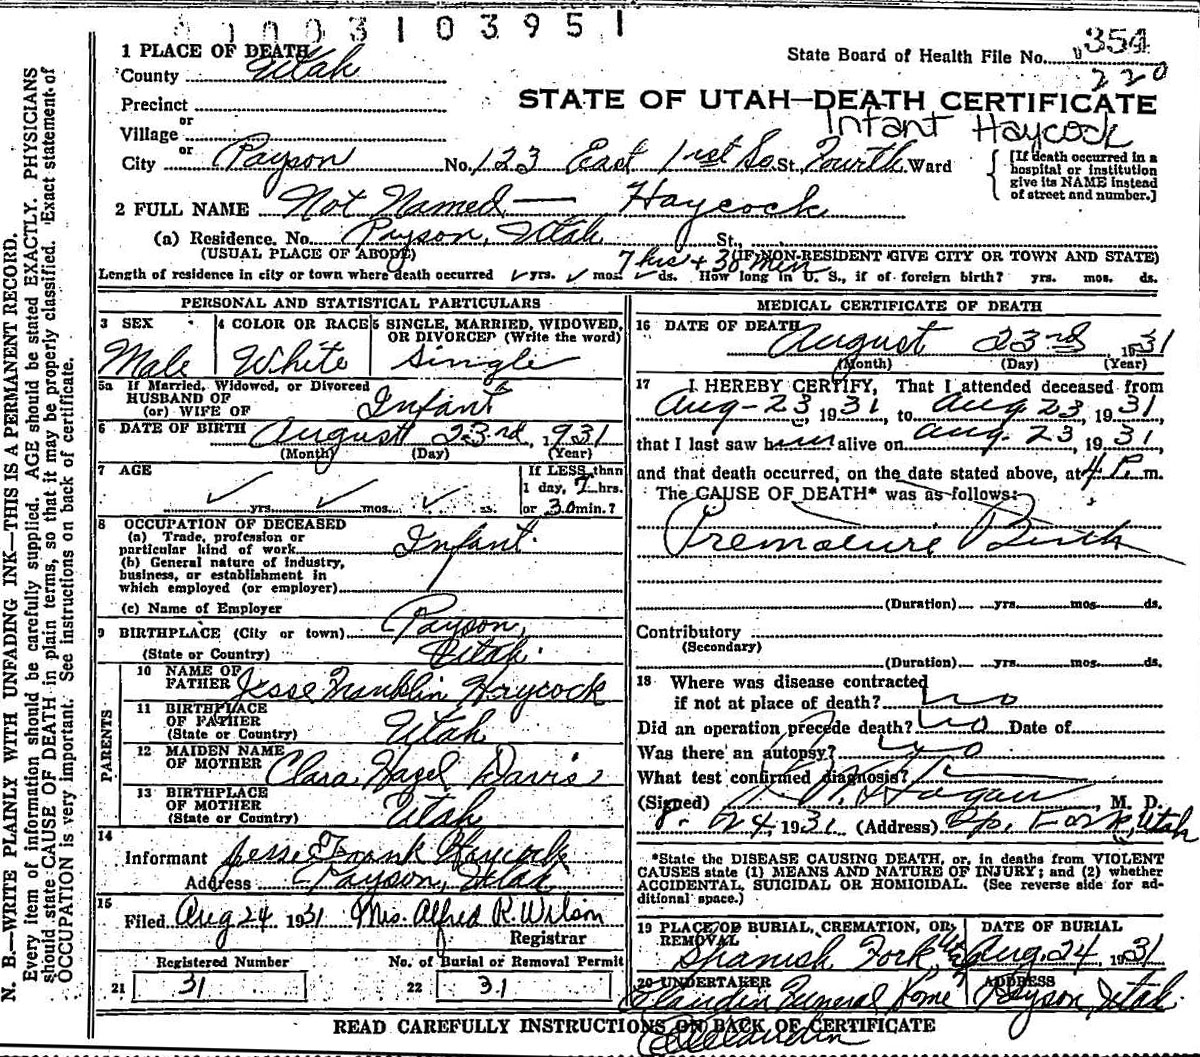 0003103951
State Board of Health File No. 354
220
1 PLACE OF DEATH
County Utah
Precinct
or
Village
or
City Payson No. 123 East 1rst So. St. Fourth Ward
STATE OF UTAH—DEATH CERTIFICATE
Infant Haycock
[If death occurred in a
hospital or institution
give its NAME instead
of street and number.]
2 FULL NAME Not Named — Haycock
(a) Residence. No. Payson, Utah St.,
(USUAL PLACE OF ABODE) (IF NON-RESIDENT GIVE CITY OR TOWN AND STATE)
7 hrs + 30 men
Length of residence in city or town where death occurred yrs. mos. ds. How long in U. S., if of foreign birth? yrs. mos. ds.
PERSONAL AND STATISTICAL PARTICULARS
3 SEX
Male
4 COLOR OR RACE
White
5 SINGLE, MARRIED, WIDOWED,
OR DIVORCED (Write the word)
Single
5a If Married, Widowed, or Divorced
HUSBAND OF
(or) WIFE OF Infant
6 DATE OF BIRTH August 23rd, 1931
(Month) (Day) (Year)
7 AGE
yrs. mos. ds.
If LESS than
1 day, 7 hrs.
or 30 min.?
8 OCCUPATION OF DECEASED
(a) Trade, profession or
particular kind of work Infant
(b) General nature of industry,
business, or establishment in
which employed (or employer)
(c) Name of Employer
9 BIRTHPLACE (City or town) Payson,
(State or Country) Utah
PARENTS
10 NAME OF
FATHER Jesse Franklin Haycock
11 BIRTHPLACE
OF FATHER
(State or Country) Utah
12 MAIDEN NAME
OF MOTHER Clara Hazel Davis
13 BIRTHPLACE
OF MOTHER
(State or Country) Utah
14
Informant Jesse Frank Haycock
Address Payson, Utah
15
Filed Aug 24 1931 Mrs. Alfred R. Wilson
Registrar
Registered Number
21 31
No. of Burial or Removal Permit
22 31
MEDICAL CERTIFICATE OF DEATH
16 DATE OF DEATH
August 23rd 1931
(Month) (Day) (Year)
17 I HEREBY CERTIFY, That I attended deceased from
Aug-23, 1931, to Aug. 23, 1931
that I last saw him alive on Aug. 23, 1931,
and that death occurred, on the date stated above, at 4 P. m.
The CAUSE OF DEATH* was as follows:
Premature Birth
(Duration) yrs. mos. ds.
Contributory
(Secondary)
(Duration) yrs. mos. ds.
18 Where was disease contracted
if not at place of death? no
Did an operation precede death? no Date of
Was there an autopsy? no
What test confirmed diagnosis?
(Signed) Hogan, M. D.
8. 24 1931 (Address) Sp. Fork, Utah
*State the DISEASE CAUSING DEATH, or, in deaths from VIOLENT
CAUSES state (1) MEANS AND NATURE OF INJURY; and (2) whether
ACCIDENTAL, SUICIDAL OR HOMICIDAL. (See reverse side for ad-
ditional space.)
19 PLACE OF BURIAL, CREMATION, OR
REMOVAL
Spanish Fork Utah
DATE OF BURIAL
Aug. 24, 1931
20 UNDERTAKER
Claudin Funeral Home
ADDRESS
Payson, Utah
READ CAREFULLY INSTRUCTIONS ON BACK OF CERTIFICATE
N. B.—WRITE PLAINLY WITH UNFADING INK—THIS IS A PERMANENT RECORD.
Every item of information should be carefully supplied. AGE should be stated EXACTLY. PHYSICIANS
should state CAUSE OF DEATH in plain terms, so that it may be properly classified. Exact statement of
OCCUPATION is very important. See Instructions on back of certificate.